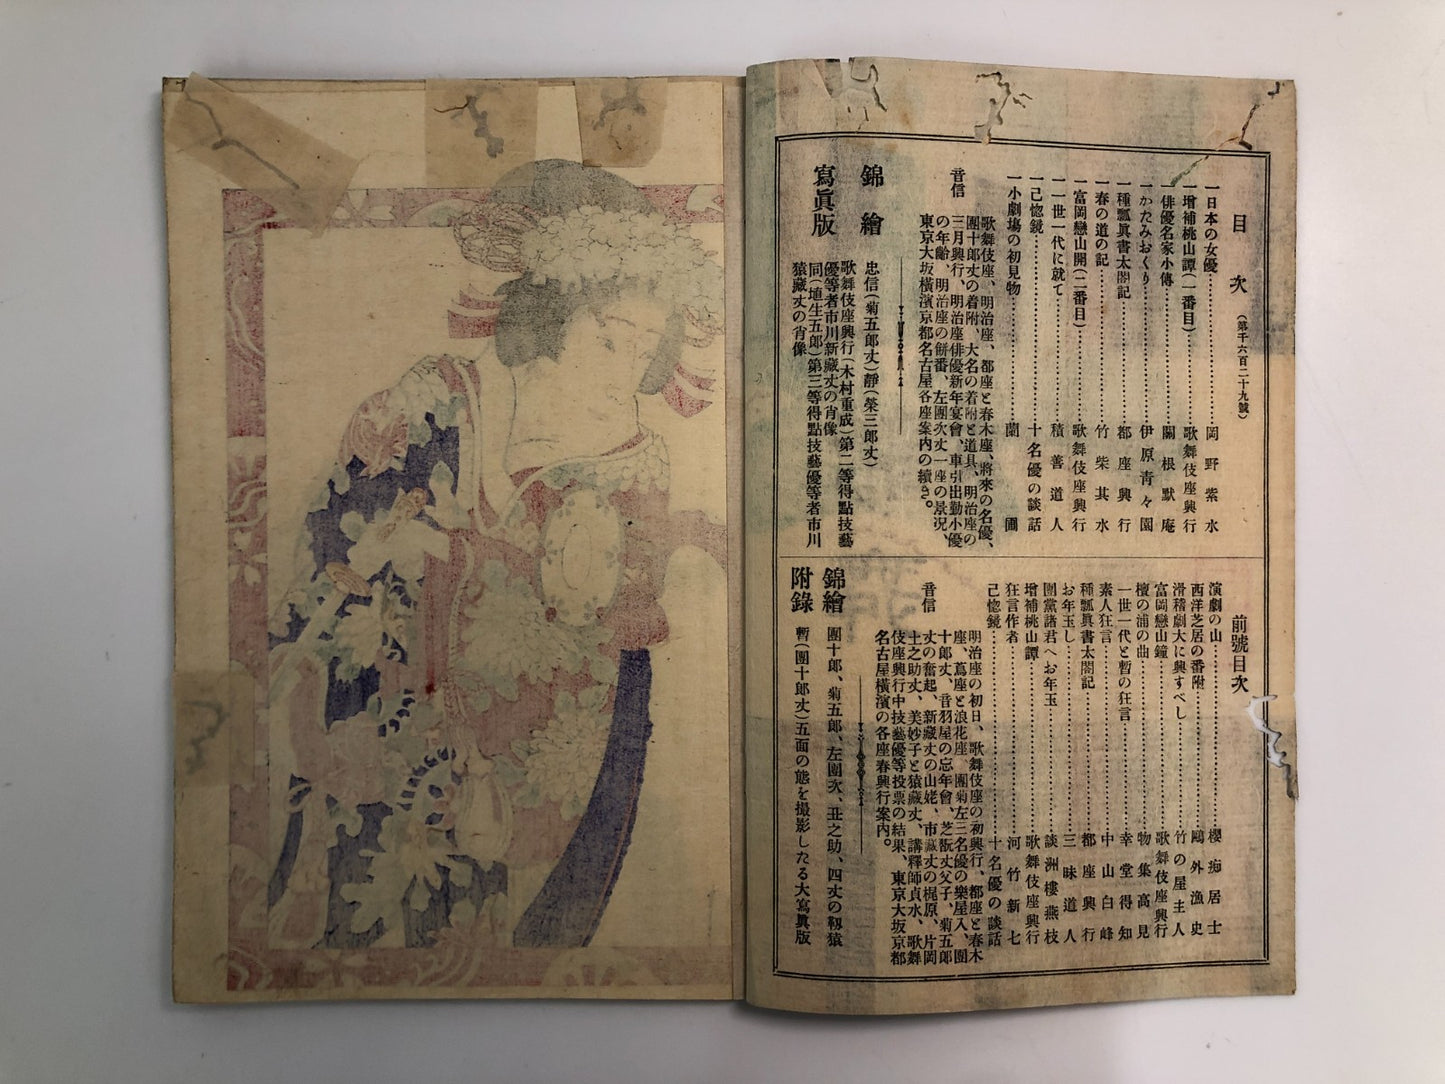 目次(第千六百二十九號)
一日本の女優……岡野紫水
一増補桃山譚(一番目)……歌舞伎座興行
一俳優名家小傳……關根默庵
一かたみおくり……伊原靑々園
一種瓢眞書太閤記……都座興行
一春の道の記……竹柴其水
一富岡戀山開(二番目)……歌舞伎座興行
一一世一代に就て……積善道人
一己惚鏡……十名優の談話
一小劇塲の初見物……蘭圃
音信
歌舞伎座、明治座、都座と春木座、將來の名優、
團十郎丈の着附、大名の着附と道具、明治座の
三月興行、明治座俳優新年宴會、車引出勤小優
の年齡、明治座の餅番、左團次丈一座の景況、
東京大坂橫濱京都名古屋各座案内の續き。
錦繪
忠信(菊五郎丈)靜(榮三郎丈)
寫眞版
歌舞伎座興行(木村重成)第二等得點技藝
優等者市川新藏丈の肖像
同(埴生五郎)第三等得點技藝優等者市川
猿藏丈の肖像
前號目次
演劇の山……櫻痴居士
西洋芝居の番附……鷗外漁史
滑稽劇大に興すべし……竹の屋主人
富岡戀山鐘……歌舞伎座興行
檀の浦の曲……物集高見
一世一代と暫の狂言……幸堂得知
素人狂言……中山白峰
種瓢眞書太閤記……都座興行
お年玉し……三昧道人
團黨諸君へお年玉……談洲樓燕枝
増補桃山譚……歌舞伎座興行
狂言作者……河竹新七
己惚鏡……十名優の談話
音信
明治座の初日、歌舞伎座の初興行、都座と春木
座、蔦座と浪花座、團菊左三名優の樂屋入、團
十郎丈、音羽屋の忘年會、芝翫丈父子、菊五郎
丈の奮起、新藏丈の山姥、市藏丈の梶原、片岡
土之助丈、美妙子と猿藏丈、講釋師貞水、歌舞
伎座興行中技藝優等投票の結果、東京大坂京都
名古屋橫濱の各座春興行案内。
錦繪
團十郎、菊五郎、左團次、丑之助、四丈の靱猿
附錄
暫(團十郎丈)五面の態を撮影したる大寫眞版